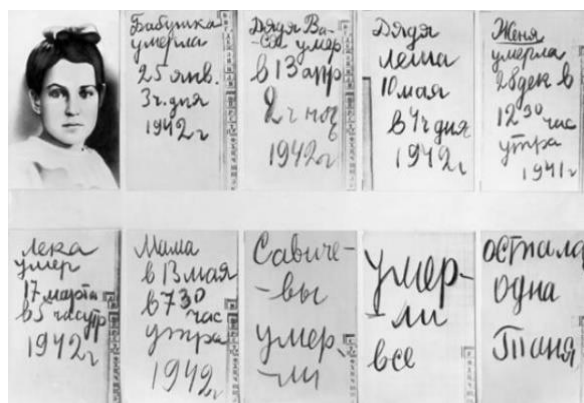 Бабушка
умерла
25 янв.
3 ч. дня
1942 г
Дядя Ва-
ся умер
в 13 апр
2 ч ноч
1942 г
Дядя
Леша
10 мая
в 4 ч дня
1942 г
Женя
умерла
28 дек в
12 30 час
утра
1941 г
Лека
умер
17 марта
в 5 час утр
1942 г
Мама
в 13 мая
в 7 30
час
утра
1942 г
Савиче-
-вы
умер-
-ли
умер-
-ли
все
остала
одна
Таня